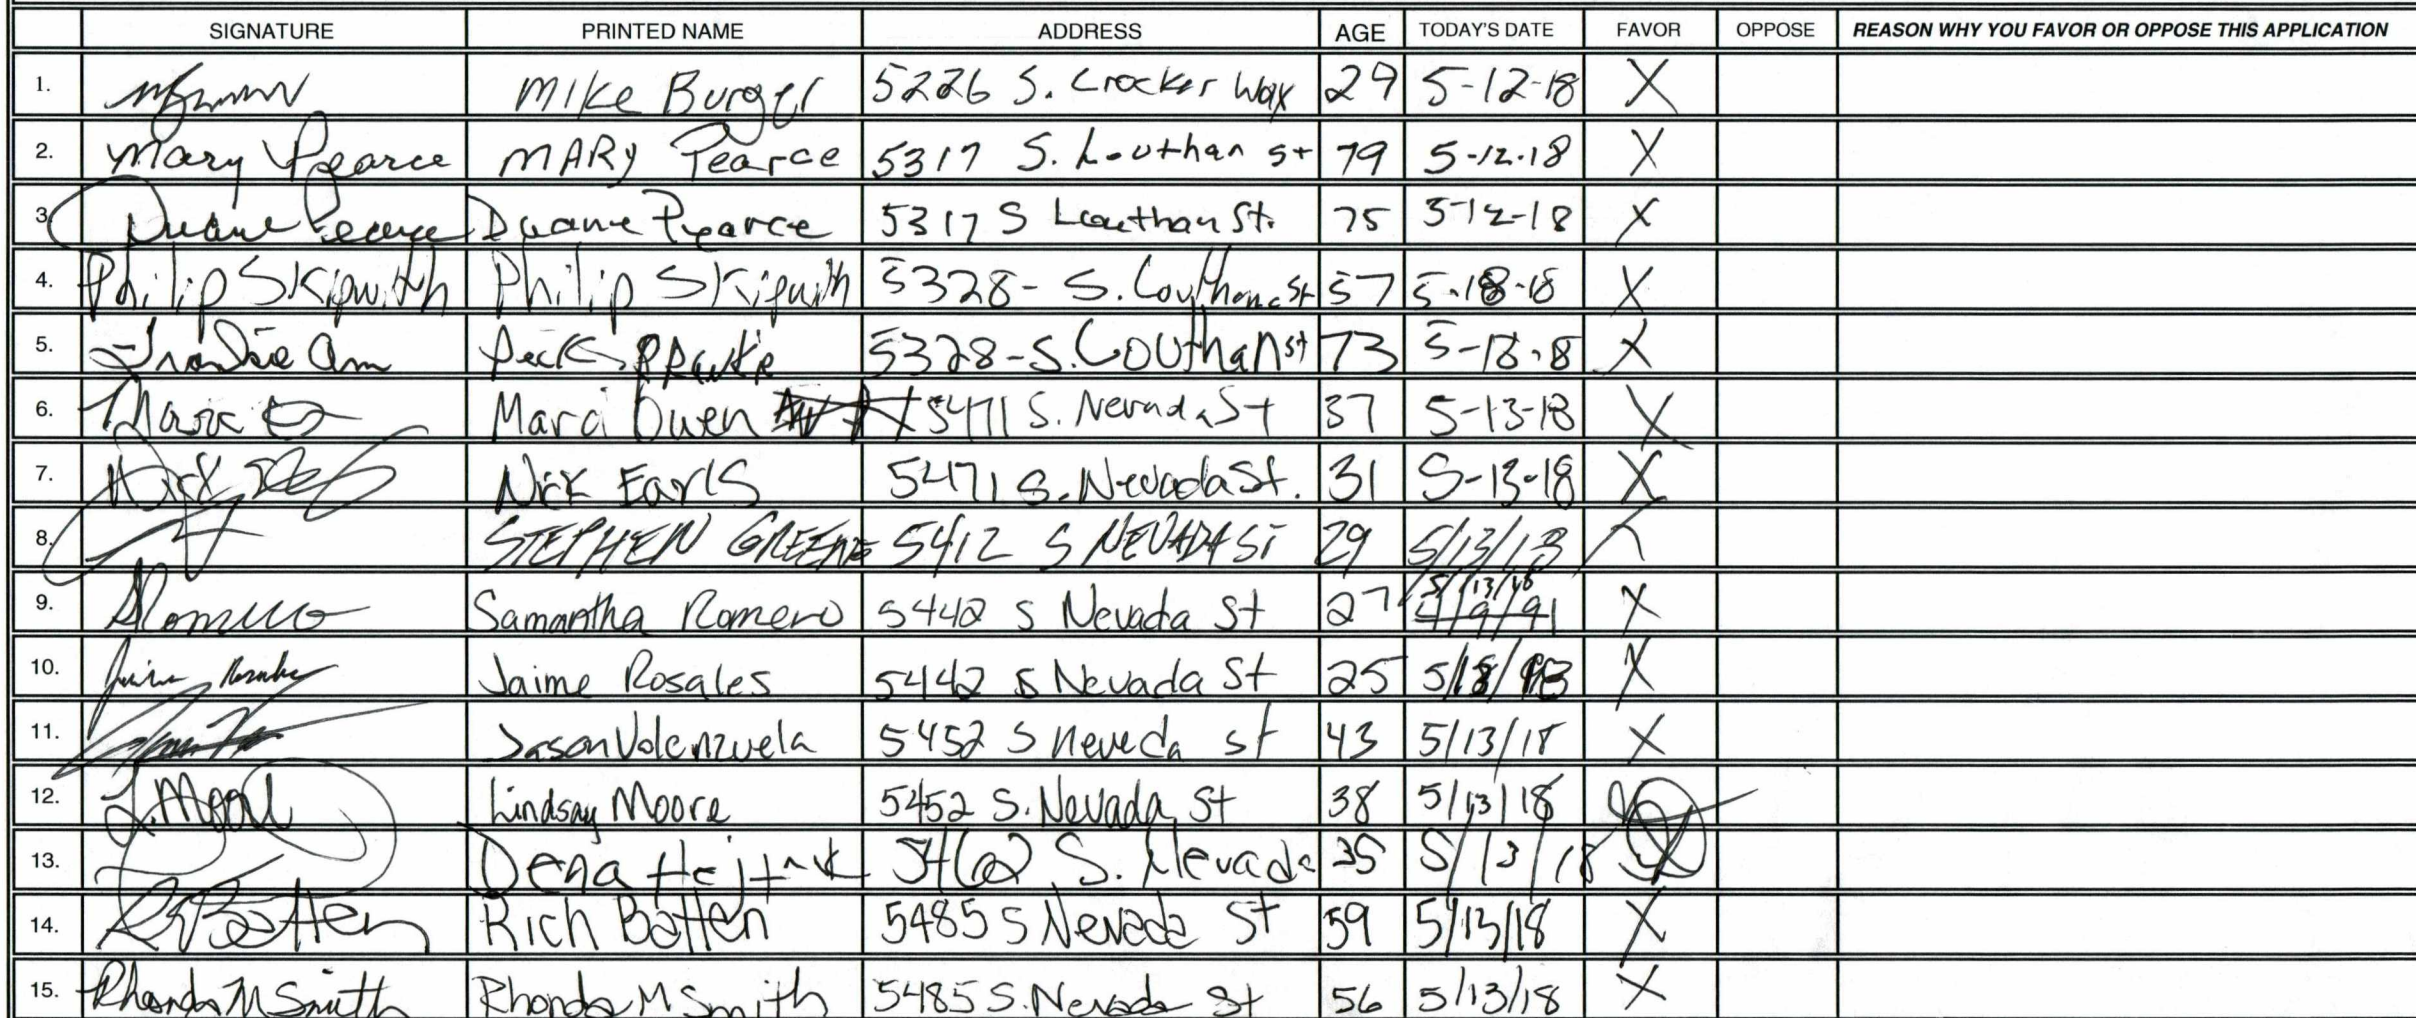 SIGNATURE PRINTED NAME ADDRESS AGE TODAY'S DATE FAVOR OPPOSE REASON WHY YOU FAVOR OR OPPOSE THIS APPLICATION
1. Mike Burger 5226 S. Crocker Way 29 5-12-18 X
2. Mary Pearce MARY Pearce 5317 S. Louthan st 79 5-12-18 X
3. Duane Pearce Duane Pearce 5317 S Louthan St. 75 5-12-18 X
4. Philip Skipwith Philip Skipwith 5328- S. Louthan St 57 5-18-18 X
5. Frankie Ann 5328-S. Louthan st 73 X
6. Marci Owen 5471 S. Nevada St 37 5-13-18 X
7. Nick Earls Nick Earls 5471 S. Nevada St. 31 5-13-18 X
8. STEPHEN GREENE 5412 S NEVADA St 29 5/13/18
9. SRomero Samantha Romero 5442 S Nevada St 27 5/13/18 4/9/91 X
10. Jaime Rosales 5442 S Nevada St 25 X
11. Jason Valenzuela 5452 S neveda st 43 5/13/18 X
12. L. Moore Lindsay Moore 5452 S. Nevada St 38 5/13/18
13. Dena 5462 S. Nevada 35 5/13/18 X
14. R Batten Rich Batten 5485 S Nevada St 59 5/13/18 X
15. Rhonda M Smith Rhonda M Smith 5485 S. Nevada St 56 5/13/18 X